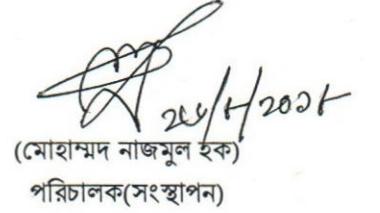 /২০১৮
(মোহাম্মদ নাজমুল হক)
পরিচালক(সংস্থাপন)